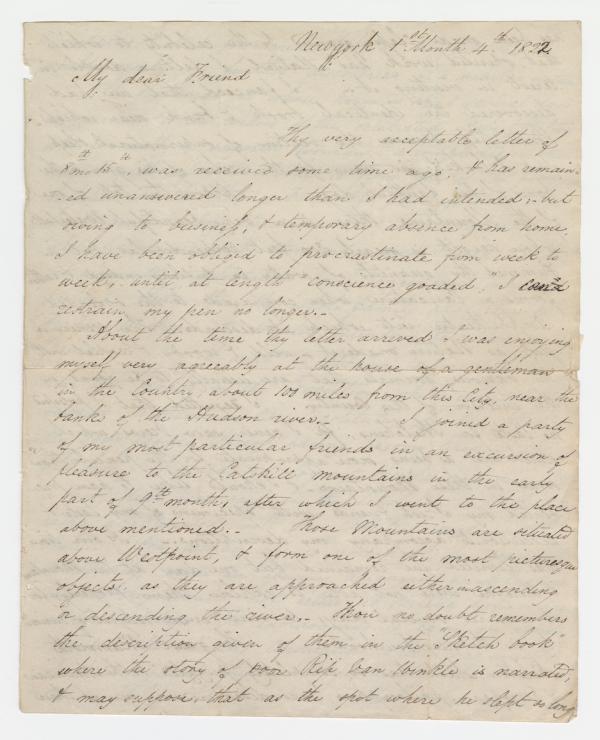 Newyork 1st Month 4th 1822.
My dear Friend
Thy very acceptable letter of
8th mo th, was received some time ago, & has remain-
-ed unanswered longer than I had intended; - but
owing to business, & temporary absence from home,
I have been obliged to procrastinate from week to
week, until at length "conscience goaded," I can
restrain my pen no longer. -
About the time thy letter arrived I was enjoying
myself very agreeably at the house of a gentleman
in the Country, about 100 miles from this City, near the
banks of the Hudson river. - I joined a party
of my most particular friends in an excursion of
pleasure to the Catskill mountains in the early
part of 9th month, after which I went to the place
above mentioned. - Those Mountains are situated
above Westpoint, & form one of the most picturesque
objects, as they are approached either in ascending
or descending the river. - Thou no doubt remembers
the description given of them in the "Sketch book"
where the story of poor Rip Van Winkle is narrated,
& may suppose, that as the spot where he slept so long